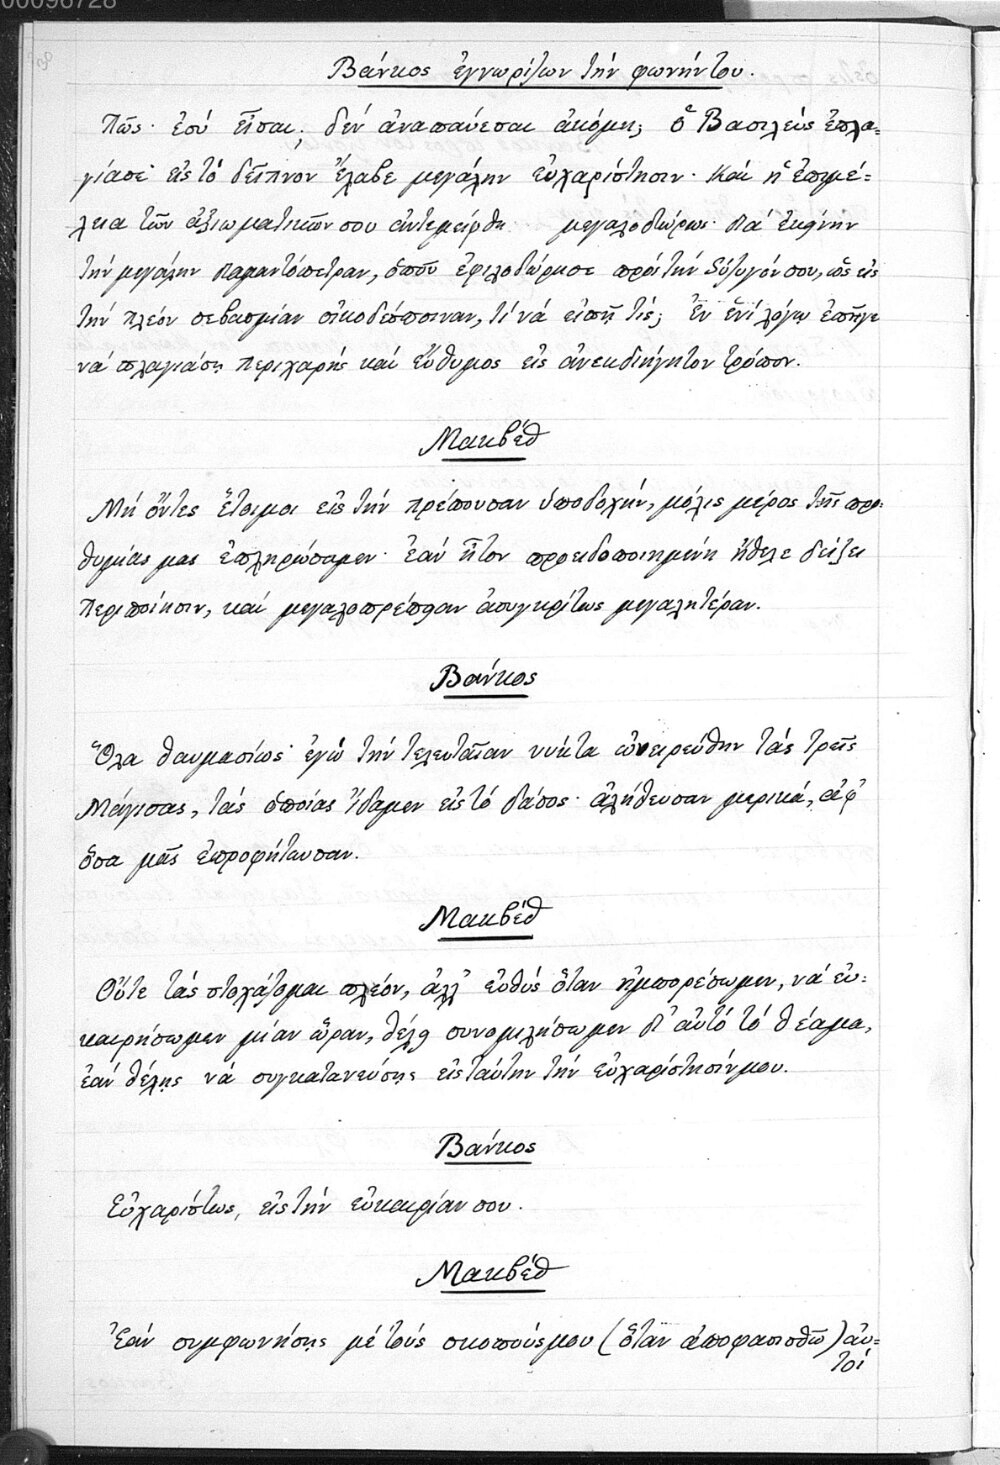 00096728
Βάνκος ἐγνωρίζων τὴν φωνήν του.
Πῶς· ἐσύ εἶσαι; δέν ἀναπαύεσαι ἀκόμη; ὁ Βασιλεύς ἐπλα-
γίασε· εἰς τό δεῖπνον ἔλαβε μεγάλην εὐχαρίστησιν· καί ἡ ἐπιμέ-
λεια τῶν ἀξιωματικῶν σου ἀντεμείφθη μεγαλοδώρως· διά ἐκείνην
τήν μεγάλην διαμαντόπετραν, ὁποῦ ἐφιλοδώρησε πρός τήν σύζυγόν σου, ὡς εἰς
τήν πλέον σεβασμίαν οἰκοδέσποιναν, τί νά εἰπῇ τίς; Ἐν ἑνί λόγῳ ἐπῆγε
νά πλαγιάσῃ περιχαρής καί εὔθυμος εἰς ἀνεκδιήγητον τρόπον.
Μακβέθ
Μή ὄντες ἕτοιμοι εἰς τήν πρέπουσαν ὑποδοχήν, μόλις μέρος τῆς προ-
θυμίας μας ἐπληρώσαμεν· ἐάν ἦτον προειδοποιημένη ἤθελε δείξει
περιποίησιν, καί μεγαλοπρέπειαν ἀσυγκρίτως μεγαλητέραν.
Βάνκος
Ὅλα θαυμασίως· ἐγώ τήν τελευταῖαν νύκτα ὠνειρεύθην τάς τρεῖς
Μάγισας, τάς ὁποίας ἴδαμεν εἰς τό δάσος· ἀλήθευσαν μερικά, ἀφ'
ὅσα μᾶς ἐπροφήτευσαν.
Μακβέθ
Οὔτε τάς στοχάζομαι πλέον, ἀλλ' εὐθύς ὅταν ἠμπορέσωμεν, νά εὐ-
καιρήσωμεν μίαν ὥραν, θέλῃ συνομιλήσωμεν δι' αὐτό τό θέαμα,
ἐάν θέλῃς νά συγκατανεύσῃς εἰς ταύτην τήν εὐχαρίστησίν μου.
Βάνκος
Εὐχαρίστως, εἰς τήν εὐκαιρίαν σου.
Μακβέθ
Ἐάν συμφωνήσῃς μέ τούς σκοπούς μου (ὅταν ἀποφασισθῶ) αὐ-
τοί